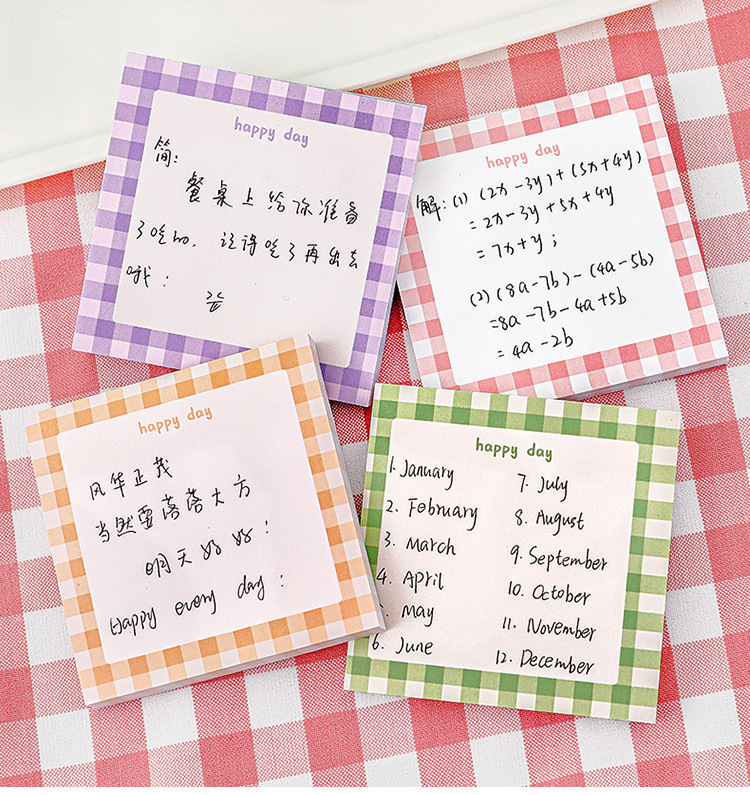 happy day
简:
餐桌上给你准备
了吃的, 记得吃了再出去
哦!
happy day
解:(1) (2x-3y)+(5x+4y)
=2x-3y+5x+4y
=7x+y;
(2) (8a-7b)-(4a-5b)
=8a-7b-4a+5b
=4a-2b
happy day
风华正茂
当然要落落大方
明天好好!
Happy every day!
happy day
1. January
2. February
3. March
4. April
May
6. June
7. July
8. August
9. September
10. October
11. November
12. December